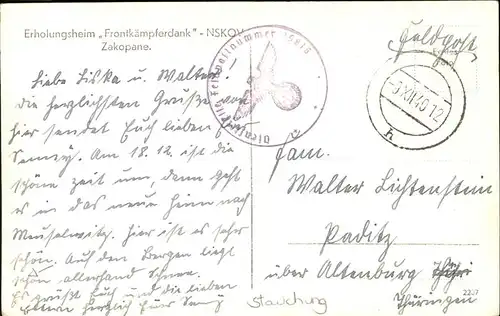 Erholungsheim „Frontkämpferdank" - NSKOV
Zakopane.
Liebe Liska u. Walter.
die herzlichsten Grüße von
hier sendet Euch lieben
Am 18.12. ist die
schöne zeit um, dann geht
es in das neue Heim nach
Meuselwitz. Hier ist es sehr
schön. Auf den Bergen liegt
schon allerhand Schnee.
Es grüßt Euch und die lieben
Eltern herzlich Euer
Feldpost
-3.XII.40.12
h
Fam.
Walter Lichtenstein
Paditz
über Altenburg
Thüringen
2207
Stauchung